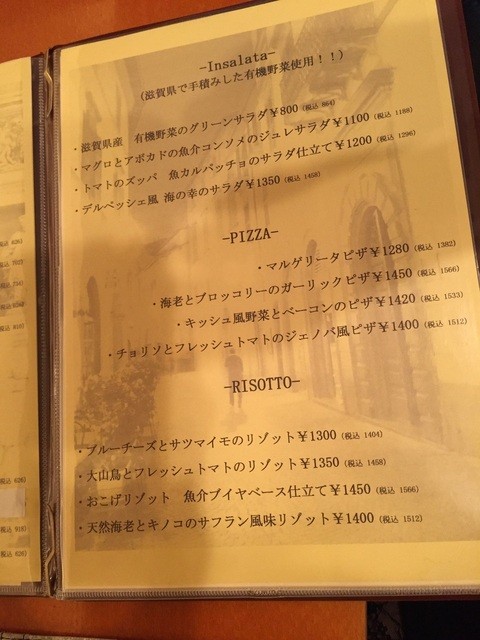 -Insalata-
(滋賀県で手積みした有機野菜使用！！)
・滋賀県産　有機野菜のグリーンサラダ￥800 (税込 864)
・マグロとアボカドの魚介コンソメのジュレサラダ￥1100 (税込 1188)
・トマトのズッパ　魚カルパッチョのサラダ仕立て￥1200 (税込 1296)
・デルペッシェ風 海の幸のサラダ￥1350 (税込 1458)
-PIZZA-
・マルゲリータピザ￥1280 (税込 1382)
・海老とブロッコリーのガーリックピザ￥1450 (税込 1566)
・キッシュ風野菜とベーコンのピザ￥1420 (税込 1533)
・チョリソとフレッシュトマトのジェノバ風ピザ￥1400 (税込 1512)
-RISOTTO-
・ブルーチーズとサツマイモのリゾット￥1300 (税込 1404)
・大山鳥とフレッシュトマトのリゾット￥1350 (税込 1458)
・おこげリゾット　魚介ブイヤベース仕立て￥1450 (税込 1566)
・天然海老とキノコのサフラン風味リゾット￥1400 (税込 1512)